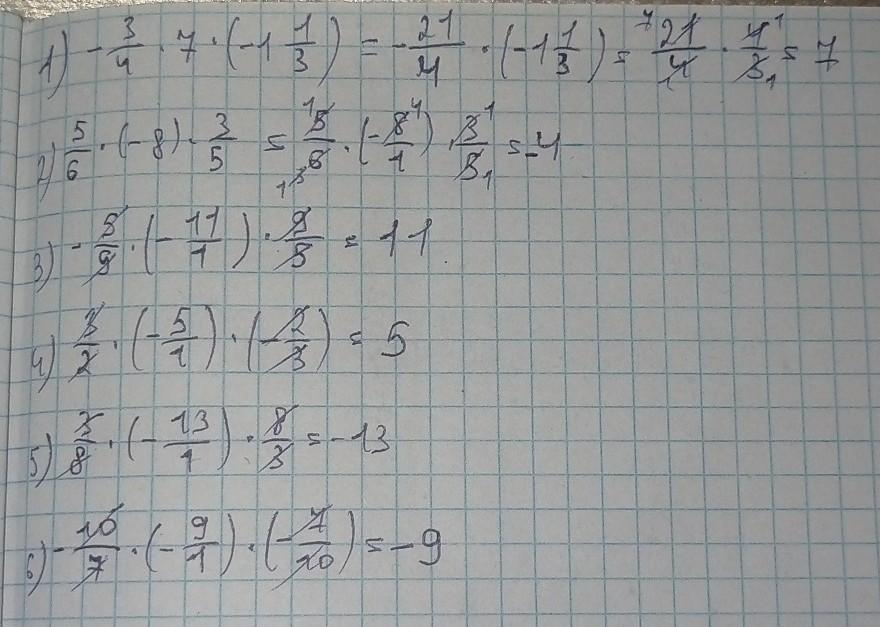 1) - 3/4 · 7 · (-1 1/3) = - 21/4 · (-1 1/3) = 7 21/4 1 · 4 1/3 1 = 7
2) 5/6 · (-8) · 3/5 = 1 5/6 3 1 · (- 8 4/1) · 3 1/5 1 = -4
3) - 5/9 · (- 11/1) · 9/5 = 11
4) 3/2 · (- 5/1) · (- 2/3) = 5
5) 3/8 · (- 13/1) · 8/3 = -13
6) - 10/7 · (- 9/1) · (- 7/10) = -9